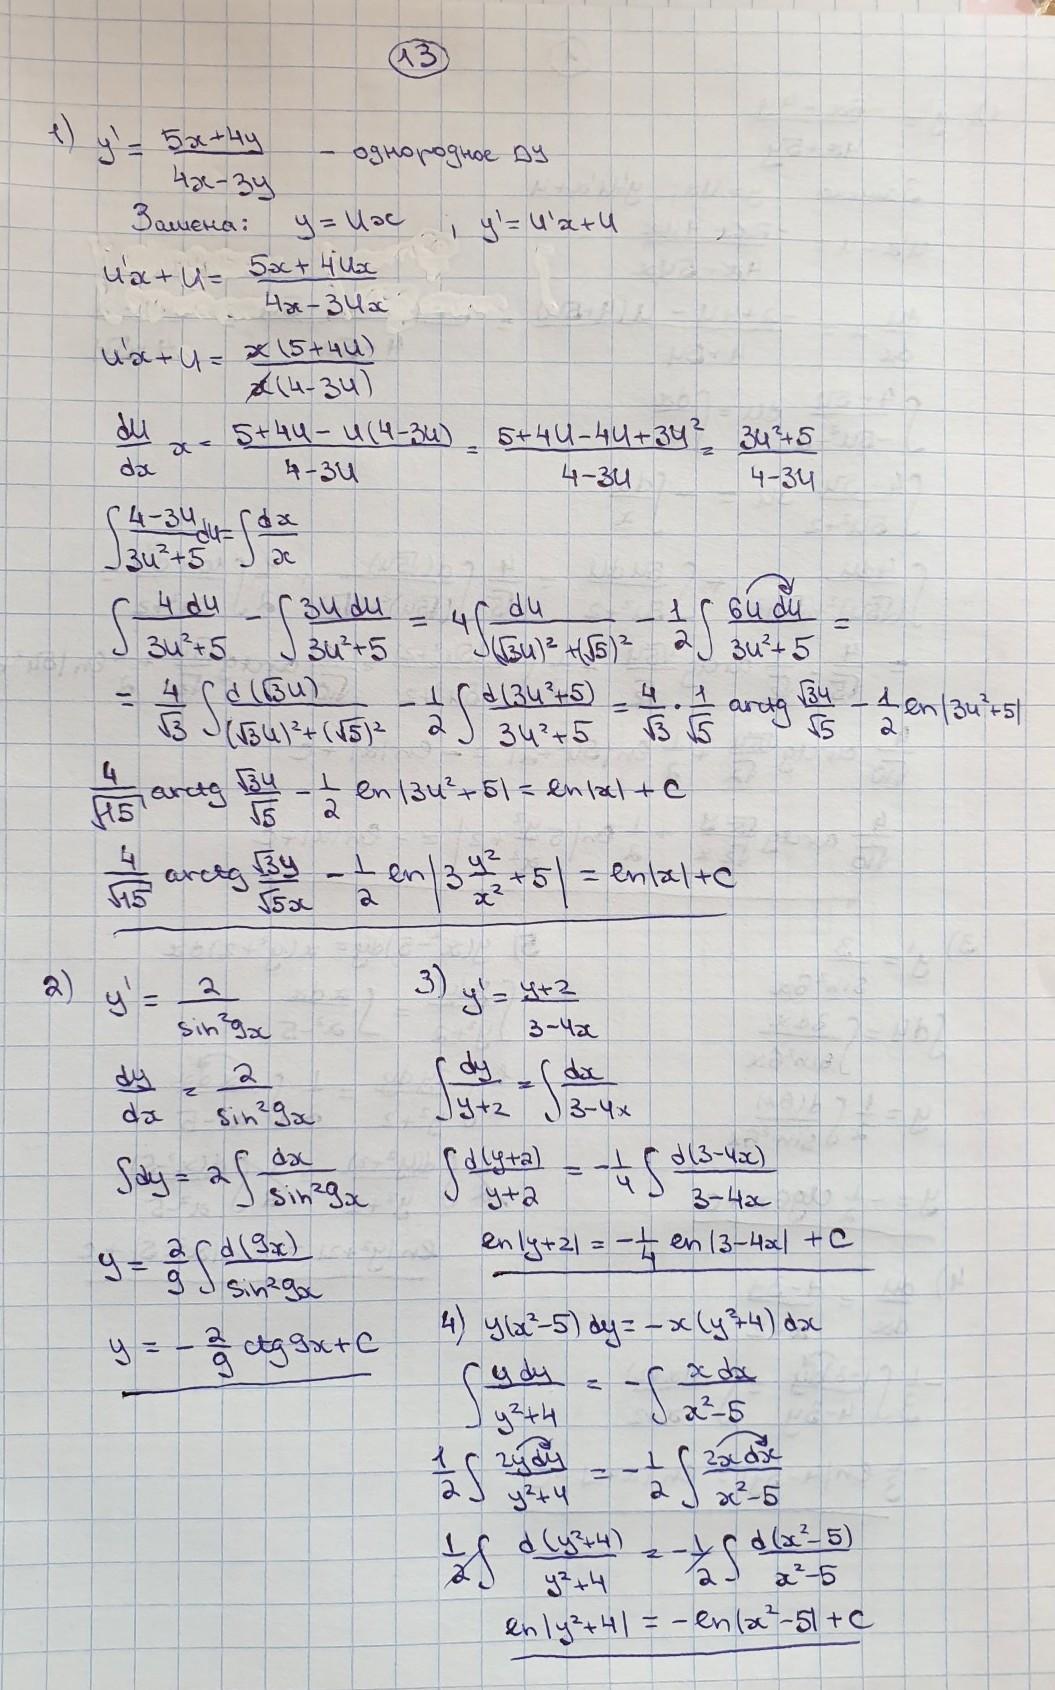 13
1) y' = (5x+4y)/(4x-3y) - однородное ДУ
Замена: y = Ux , ; y' = U'x+U
U'x+U = (5x+4Ux)/(4x-3Ux)
U'x+U = x(5+4U)/x(4-3U)
dU/dx x = (5+4U-U(4-3U))/(4-3U) = (5+4U-4U+3U²)/(4-3U) = (3U²+5)/(4-3U)
∫(4-3U)/(3U²+5) dU = ∫dx/x
∫4dU/(3U²+5) - ∫3UdU/(3U²+5) = 4∫dU/((√3U)²+(√5)²) - 1/2 ∫6UdU/(3U²+5) =
= 4/√3 ∫d(√3U)/((√3U)²+(√5)²) - 1/2 ∫d(3U²+5)/(3U²+5) = 4/√3 · 1/√5 arctg √3U/√5 - 1/2 ln|3U²+5|
4/√15 arctg √3U/√5 - 1/2 ln|3U²+5| = ln|x| + C
4/√15 arctg √3y/√5x - 1/2 ln|3 y²/x² + 5| = ln|x| + C
2) y' = 2/sin²9x
dy/dx = 2/sin²9x
∫dy = 2∫dx/sin²9x
y = 2/9 ∫d(9x)/sin²9x
y = -2/9 ctg9x+C
3) y' = (y+2)/(3-4x)
∫dy/(y+2) = ∫dx/(3-4x)
∫d(y+2)/(y+2) = -1/4 ∫d(3-4x)/(3-4x)
ln|y+2| = -1/4 ln|3-4x| + C
4) y(x²-5)dy = -x(y²+4)dx
∫ydy/(y²+4) = -∫xdx/(x²-5)
1/2 ∫2ydy/(y²+4) = -1/2 ∫2xdx/(x²-5)
1/2 ∫d(y²+4)/(y²+4) = -1/2 ∫d(x²-5)/(x²-5)
ln|y²+4| = -ln|x²-5| + C